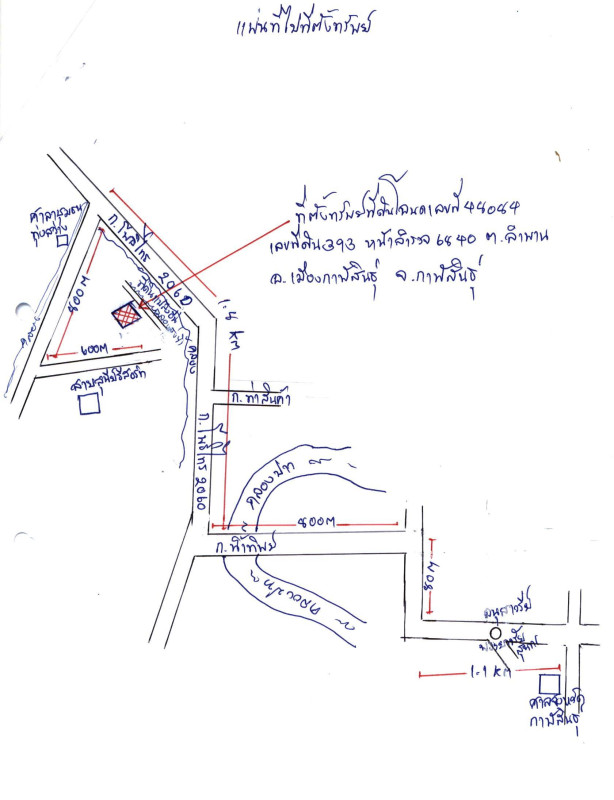 แผนที่ไปที่ตั้งทรัพย์
ที่ตั้งทรัพย์ที่ดินโฉนดเลขที่ 44084
เลขที่ดิน 393 หน้าสำรวจ 6840 ต. ลำพาน
อ. เมืองกาฬสินธุ์ จ. กาฬสินธุ์
ศาลาชุมชน
ทุ่งสว่าง
ถ. โพธิ์ไทร 2060
คลอง
600M
รีสอร์ท
1.4 KM
คลอง
ถ. ท่าสินค้า
ถ. โพธิ์ไทร 2060
คลองปาว
800M
ถ. น้ำทิพย์
คลองปาว
80M
อนุสาวรีย์
พระยาชัย
สุนทร
1.1 KM
ศาลจังหวัด
กาฬสินธุ์